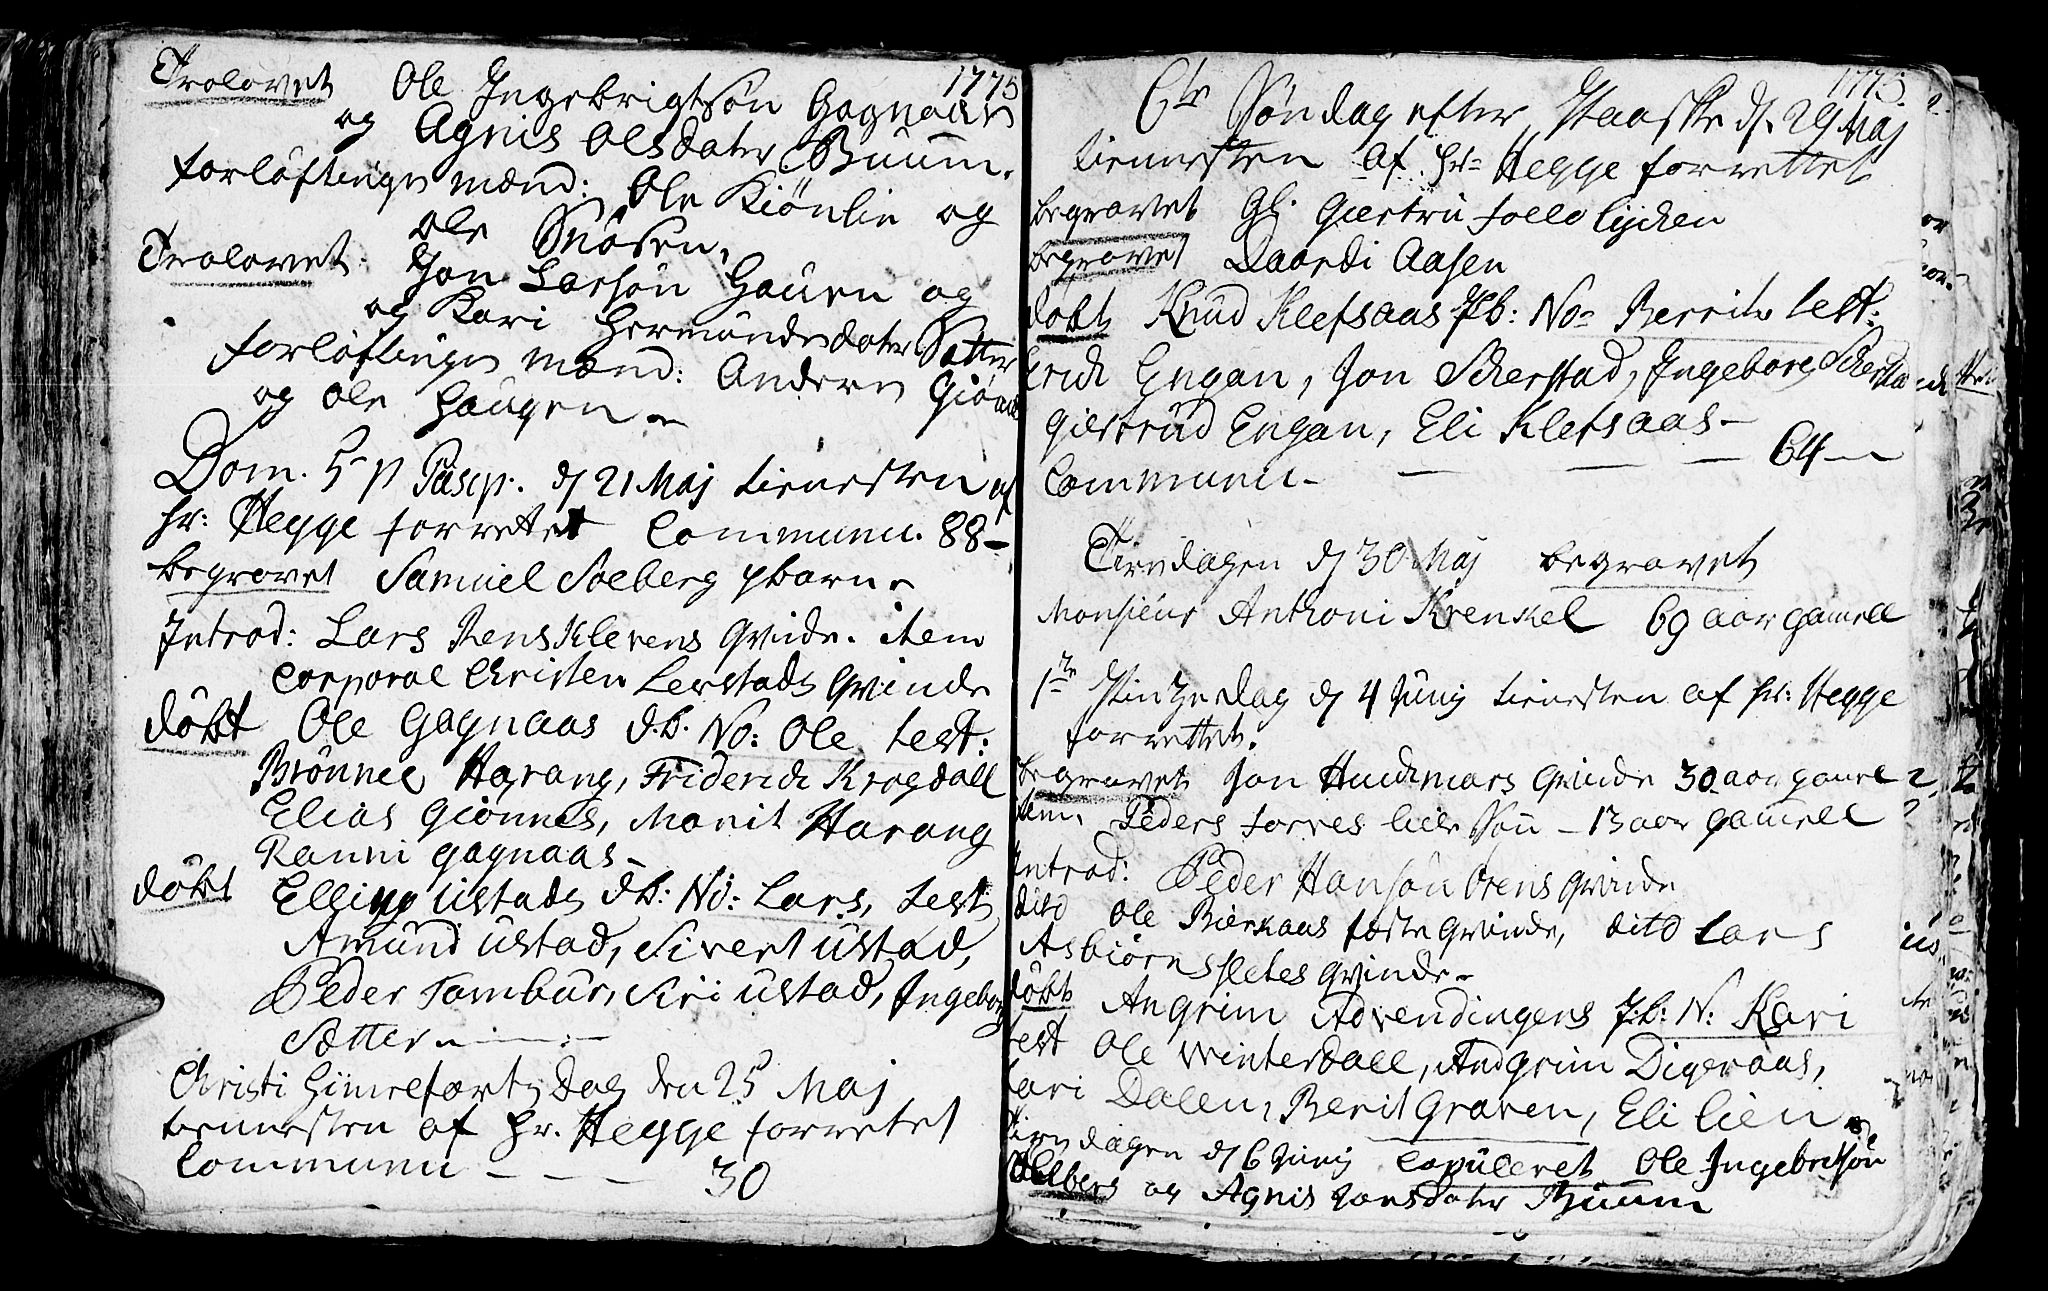 1775
Trolovet Ole Ingebrigtsøn Gagnaas
og Agnis Olsdater Buum.
forløftings mænd: Ole Kiønlie og
Ole Snøsen,
Trolovet. Jon Larsøn Hauen og
og Kari Hermundsdater Sætter
forløftings mænd: Anders Giønnes
og Ole Haugen
Dom. 5 p Pascp. d 21 Maj tienesten af
Hr: Hegge forrettet Communic. 88
begravet Samuel Soeberg pbarn
Introd: Lars Rensklevens Qvinde. item
Corporal Christen Lerstads Qvinde
døbt Ole Gagnaas d.b. No: Ole test:
Brønnel Harang, Friderich Krogdall
Elias Giønnes, Marit Harang
Ranni Gagnaas
døbt Elling Ustads db: No: Lars, test
Amund Ustad, Sivert Ustad,
Peder Tambur, Siri Ustad, Ingeborg
Sætter
Christi Himmelfarts Dag den 25 Maj
tienesten af Hr. Hegge forrettet
Communic - - - - 30
1775.
6te Søndag efter Paaske d. 29 Maj
tienesten af Hr= Hegge forrettet
begravet Gl. Giertru follo lycken
begravet Daardi Aasen
døbt Knud Klefsaas Pb: No= Berrite test:
Erich Engan, Jon Scherstad, Ingeborg Scherstad
Giertrud Engan, Eli Klefsaas
Communic. - - - 64
Tirsdagen d 30 Maj begravet
Monsieur Anthoni Krenkel 69 aar gamell
1te Pintze Dag d 4 Junij tienesten af Hr: Hegge
forrettet.
begravet Jon Hindmars Qvinde 30 aar gamel
item Peders torres lille Søn - 13 aar gamell
Introd: Peder Hansøn Orens Qvinde
dito Ole Bierkaas føste Qvinde, dito Lars
Asbiørnsletes Qvinde
døbt Angrim Advendingens J:b: N: Kari
test Ole Winterdall, Andgrim Digeraas,
Kari Dalen, Berit Graven, Eli Lien
Tirsdagen d 6 Junij Copuleret Ole Ingebretsøn
Oelberg og Agnis Jonsdater Buum